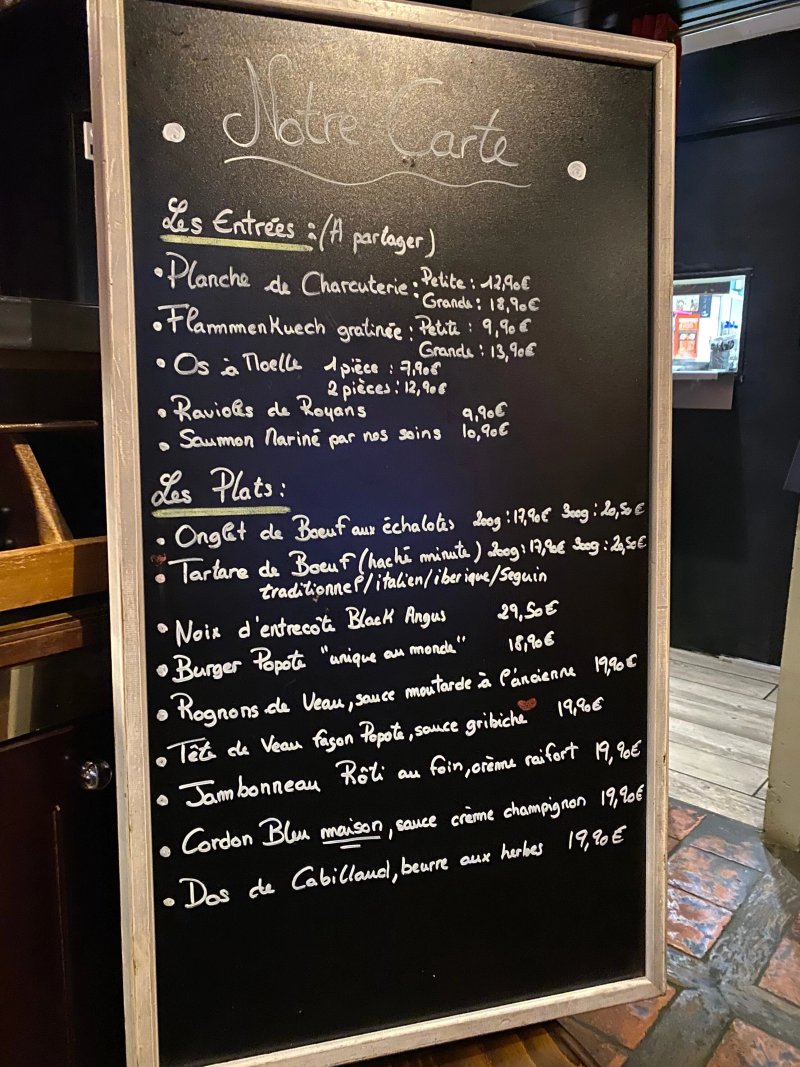 Notre Carte
Les Entrées : (A partager)
• Planche de Charcuterie : Petite : 12,90€
Grande : 18,90€
• Flammmenkuech gratinée : Petite : 9,90€
Grande : 13,90€
• Os à Moelle 1 pièce : 7,90€
2 pièces : 12,90€
• Ravioles de Royans 9,90€
• Saumon Mariné par nos soins 10,90€
Les Plats :
• Onglet de Boeuf aux échalotes 200g : 17,90€ 300g : 20,50€
• Tartare de Boeuf (haché minute) 200g : 17,90€ 300g : 20,50€
traditionnel/italien/iberique/Seguin
• Noix d'entrecôte Black Angus 29,50€
• Burger Popote "unique au monde" 18,90€
• Rognons de Veau, sauce moutarde à l'ancienne 19,90€
• Tête de Veau façon Popote, sauce gribiche 19,90€
• Jambonneau Rôti au foin, crème raifort 19,90€
• Cordon Bleu maison, sauce crème champignon 19,90€
• Dos de Cabillaud, beurre aux herbes 19,90€